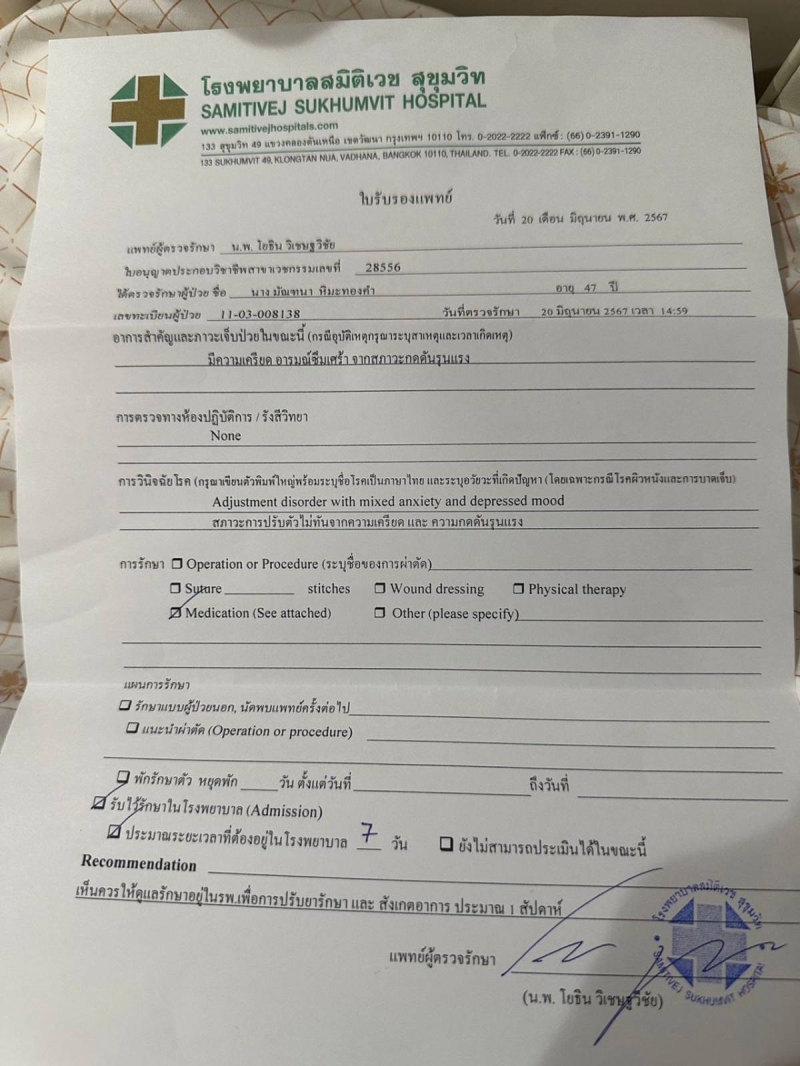 โรงพยาบาลสมิติเวช สุขุมวิท
SAMITIVEJ SUKHUMVIT HOSPITAL
www.samitivejhospitals.com
133 สุขุมวิท 49 แขวงคลองตันเหนือ เขตวัฒนา กรุงเทพฯ 10110 โทร. 0-2022-2222 แฟ็กซ์ : (66) 0-2391-1290
133 SUKHUMVIT 49, KLONGTAN NUA, VADHANA, BANGKOK 10110, THAILAND. TEL. 0-2022-2222 FAX : (66) 0-2391-1290
ใบรับรองแพทย์
วันที่ 20 เดือน มิถุนายน พ.ศ. 2567
แพทย์ผู้ตรวจรักษา น.พ. โยธิน วิเชษฐวิชัย
ใบอนุญาตประกอบวิชาชีพสาขาเวชกรรมเลขที่ 28556
ได้ตรวจรักษาผู้ป่วย ชื่อ นาง มัณฑนา หิมะทองคำ อายุ 47 ปี
เลขทะเบียนผู้ป่วย 11-03-008138 วันที่ตรวจรักษา 20 มิถุนายน 2567 เวลา 14:59
อาการสำคัญและภาวะเจ็บป่วยในขณะนี้ (กรณีอุบัติเหตุกรุณาระบุสาเหตุและเวลาเกิดเหตุ)
มีความเครียด อารมณ์ซึมเศร้า จากสภาวะกดดันรุนแรง
การตรวจทางห้องปฏิบัติการ / รังสีวิทยา
None
การวินิจฉัยโรค (กรุณาเขียนตัวพิมพ์ใหญ่พร้อมระบุชื่อโรคเป็นภาษาไทย และระบุอวัยวะที่เกิดปัญหา (โดยเฉพาะกรณีโรคผิวหนังและการบาดเจ็บ)
Adjustment disorder with mixed anxiety and depressed mood
สภาวะการปรับตัวไม่ทันจากความเครียด และ ความกดดันรุนแรง
การรักษา Operation or Procedure (ระบุชื่อของการผ่าตัด)
Suture stitches Wound dressing Physical therapy
Medication (See attached) Other (please specify)
แผนการรักษา
รักษาแบบผู้ป่วยนอก, นัดพบแพทย์ครั้งต่อไป
แนะนำผ่าตัด (Operation or procedure)
พักรักษาตัว หยุดพัก วัน ตั้งแต่วันที่ ถึงวันที่
รับไว้รักษาในโรงพยาบาล (Admission)
ประมาณระยะเวลาที่ต้องอยู่ในโรงพยาบาล 7 วัน ยังไม่สามารถประเมินได้ในขณะนี้
Recommendation
เห็นควรให้ดูแลรักษาอยู่ในรพ.เพื่อการปรับยารักษา และ สังเกตอาการ ประมาณ 1 สัปดาห์
แพทย์ผู้ตรวจรักษา
(น.พ. โยธิน วิเชษฐวิชัย)
โรงพยาบาลสมิติเวช สุขุมวิท
SAMITIVEJ SUKHUMVIT HOSPITAL